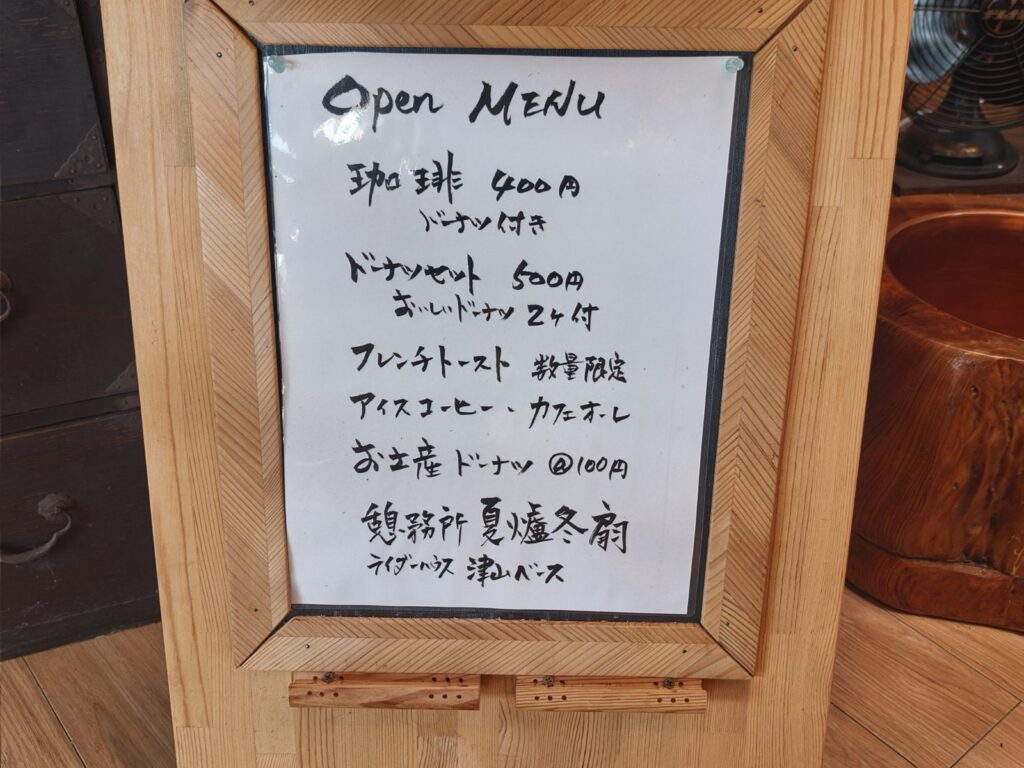 Open MENU
珈琲 400円
ドーナツ付き
ドーナツセット 500円
おいしいドーナツ 2ヶ付
フレンチトースト 数量限定
アイスコーヒー・カフェオーレ
お土産 ドーナツ @100円
憩務所 夏爐冬扇
ライダーハウス 津山ベース